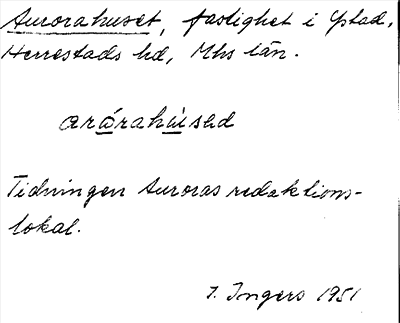 Aurorahuset, fastighet i Ystad,
Herrestads hd, Mhs län.
arórahùsəd
Tidningen Auroras redaktions-
lokal.
I. Ingers 1951